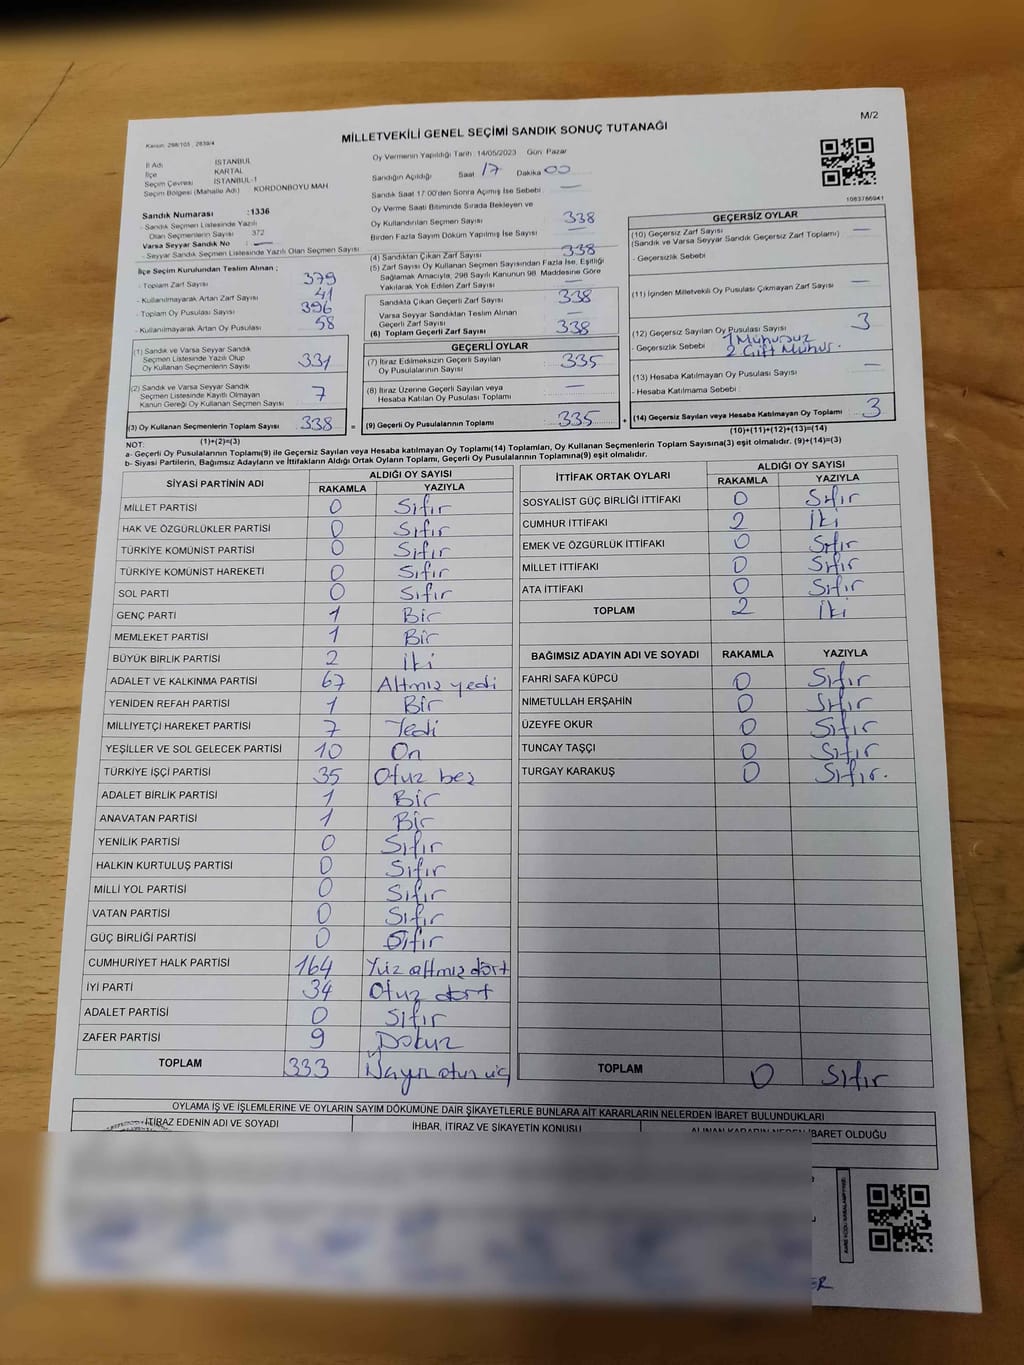 M/2
MİLLETVEKİLİ GENEL SEÇİMİ SANDIK SONUÇ TUTANAĞI
Kanun: 298/105 , 2839/4
İl Adı İSTANBUL
İlçe KARTAL
Seçim Çevresi İSTANBUL-1
Seçim Bölgesi (Mahalle Adı) KORDONBOYU MAH.
Sandık Numarası :1336
- Sandık Seçmen Listesinde Yazılı
Olan Seçmenlerin Sayısı 372
Varsa Seyyar Sandık No : —
- Seyyar Sandık Seçmen Listesinde Yazılı Olan Seçmen Sayısı
İlçe Seçim Kurulundan Teslim Alınan ;
- Toplam Zarf Sayısı 379
- Kullanılmayarak Artan Zarf Sayısı 41
- Toplam Oy Pusulası Sayısı 396
- Kullanılmayarak Artan Oy Pusulası 58
(1) Sandık ve Varsa Seyyar Sandık
Seçmen Listesinde Yazılı Olup
Oy Kullanan Seçmenlerin Sayısı 331
(2) Sandık ve Varsa Seyyar Sandık
Seçmen Listesinde Kayıtlı Olmayan
Kanun Gereği Oy Kullanan Seçmen Sayısı 7
(3) Oy Kullanan Seçmenlerin Toplam Sayısı 338 =
(1)+(2)=(3)
Oy Vermenin Yapıldığı Tarih : 14/05/2023 Gün: Pazar
Sandığın Açıldığı Saat 17 Dakika 00
Sandık Saat 17.00'den Sonra Açımış İse Sebebi —
Oy Verme Saati Bitiminde Sırada Bekleyen ve
Oy Kullandırılan Seçmen Sayısı 338
Birden Fazla Sayım Döküm Yapılmış İse Sayısı —
(4) Sandıktan Çıkan Zarf Sayısı 338
(5) Zarf Sayısı Oy Kullanan Seçmen Sayısından Fazla İse, Eşitliği
Sağlamak Amacıyla, 298 Sayılı Kanunun 98. Maddesine Göre
Yakılarak Yok Edilen Zarf Sayısı —
Sandıkta Çıkan Geçerli Zarf Sayısı 338
Varsa Seyyar Sandıktan Teslim Alınan
Geçerli Zarf Sayısı —
(6) Toplam Geçerli Zarf Sayısı 338
GEÇERLİ OYLAR
(7) İtiraz Edilmeksizin Geçerli Sayılan
Oy Pusulalarının Sayısı 335
(8) İtiraz Üzerine Geçerli Sayılan veya
Hesaba Katılan Oy Pusulası Toplamı —
(9) Geçerli Oy Pusulalarının Toplamı 335 +
1083786941
GEÇERSİZ OYLAR
(10) Geçersiz Zarf Sayısı —
(Sandık ve Varsa Seyyar Sandık Geçersiz Zarf Toplamı)
- Geçersizlik Sebebi
(11) İçinden Milletvekili Oy Pusulası Çıkmayan Zarf Sayısı —
(12) Geçersiz Sayılan Oy Pusulası Sayısı 3
- Geçersizlik Sebebi 1 Mühürsüz
2 Çift Mühür.
(13) Hesaba Katılmayan Oy Pusulası Sayısı —
- Hesaba Katılmama Sebebi :
(14) Geçersiz Sayılan veya Hesaba Katılmayan Oy Toplamı 3
(10)+(11)+(12)+(13)=(14)
NOT:
a- Geçerli Oy Pusulalarının Toplamı(9) ile Geçersiz Sayılan veya Hesaba Katılmayan Oy Toplamı(14) Toplamları, Oy Kullanan Seçmenlerin Toplam Sayısına(3) eşit olmalıdır. (9)+(14)=(3)
b- Siyasi Partilerin, Bağımsız Adayların ve İttifakların Aldığı Ortak Oyların Toplamı, Geçerli Oy Pusulalarının Toplamına(9) eşit olmalıdır.
SİYASİ PARTİNİN ADI ALDIĞI OY SAYISI
RAKAMLA YAZIYLA
MİLLET PARTİSİ 0 Sıfır
HAK VE ÖZGÜRLÜKLER PARTİSİ 0 Sıfır
TÜRKİYE KOMÜNİST PARTİSİ 0 Sıfır
TÜRKİYE KOMÜNİST HAREKETİ 0 Sıfır
SOL PARTİ 0 Sıfır
GENÇ PARTİ 1 Bir
MEMLEKET PARTİSİ 1 Bir
BÜYÜK BİRLİK PARTİSİ 2 İki
ADALET VE KALKINMA PARTİSİ 67 Altmış yedi
YENİDEN REFAH PARTİSİ 1 Bir
MİLLİYETÇİ HAREKET PARTİSİ 7 Yedi
YEŞİLLER VE SOL GELECEK PARTİSİ 10 On
TÜRKİYE İŞÇİ PARTİSİ 35 Otuz beş
ADALET BİRLİK PARTİSİ 1 Bir
ANAVATAN PARTİSİ 1 Bir
YENİLİK PARTİSİ 0 Sıfır
HALKIN KURTULUŞ PARTİSİ 0 Sıfır
MİLLİ YOL PARTİSİ 0 Sıfır
VATAN PARTİSİ 0 Sıfır
GÜÇ BİRLİĞİ PARTİSİ 0 Sıfır
CUMHURİYET HALK PARTİSİ 164 Yüz altmış dört
İYİ PARTİ 34 Otuz dört
ADALET PARTİSİ 0 Sıfır
ZAFER PARTİSİ 9 Dokuz
TOPLAM 333 otuz üç
İTTİFAK ORTAK OYLARI ALDIĞI OY SAYISI
RAKAMLA YAZIYLA
SOSYALİST GÜÇ BİRLİĞİ İTTİFAKI 0 Sıfır
CUMHUR İTTİFAKI 2 İki
EMEK VE ÖZGÜRLÜK İTTİFAKI 0 Sıfır
MİLLET İTTİFAKI 0 Sıfır
ATA İTTİFAKI 0 Sıfır
TOPLAM 2 İki
BAĞIMSIZ ADAYIN ADI VE SOYADI RAKAMLA YAZIYLA
FAHRİ SAFA KÜPCÜ 0 Sıfır
NİMETULLAH ERŞAHİN 0 Sıfır
ÜZEYFE OKUR 0 Sıfır
TUNCAY TAŞÇI 0 Sıfır
TURGAY KARAKUŞ 0 Sıfır.
TOPLAM 0 Sıfır
OYLAMA İŞ VE İŞLEMLERİNE VE OYLARIN SAYIM DÖKÜMÜNE DAİR ŞİKAYETLERLE BUNLARA AİT KARARLARIN NELERDEN İBARET BULUNDUKLARI
İTİRAZ EDENİN ADI VE SOYADI İHBAR, İTİRAZ VE ŞİKAYETİN KONUSU ALINAN KARARIN NEDEN İBARET OLDUĞU